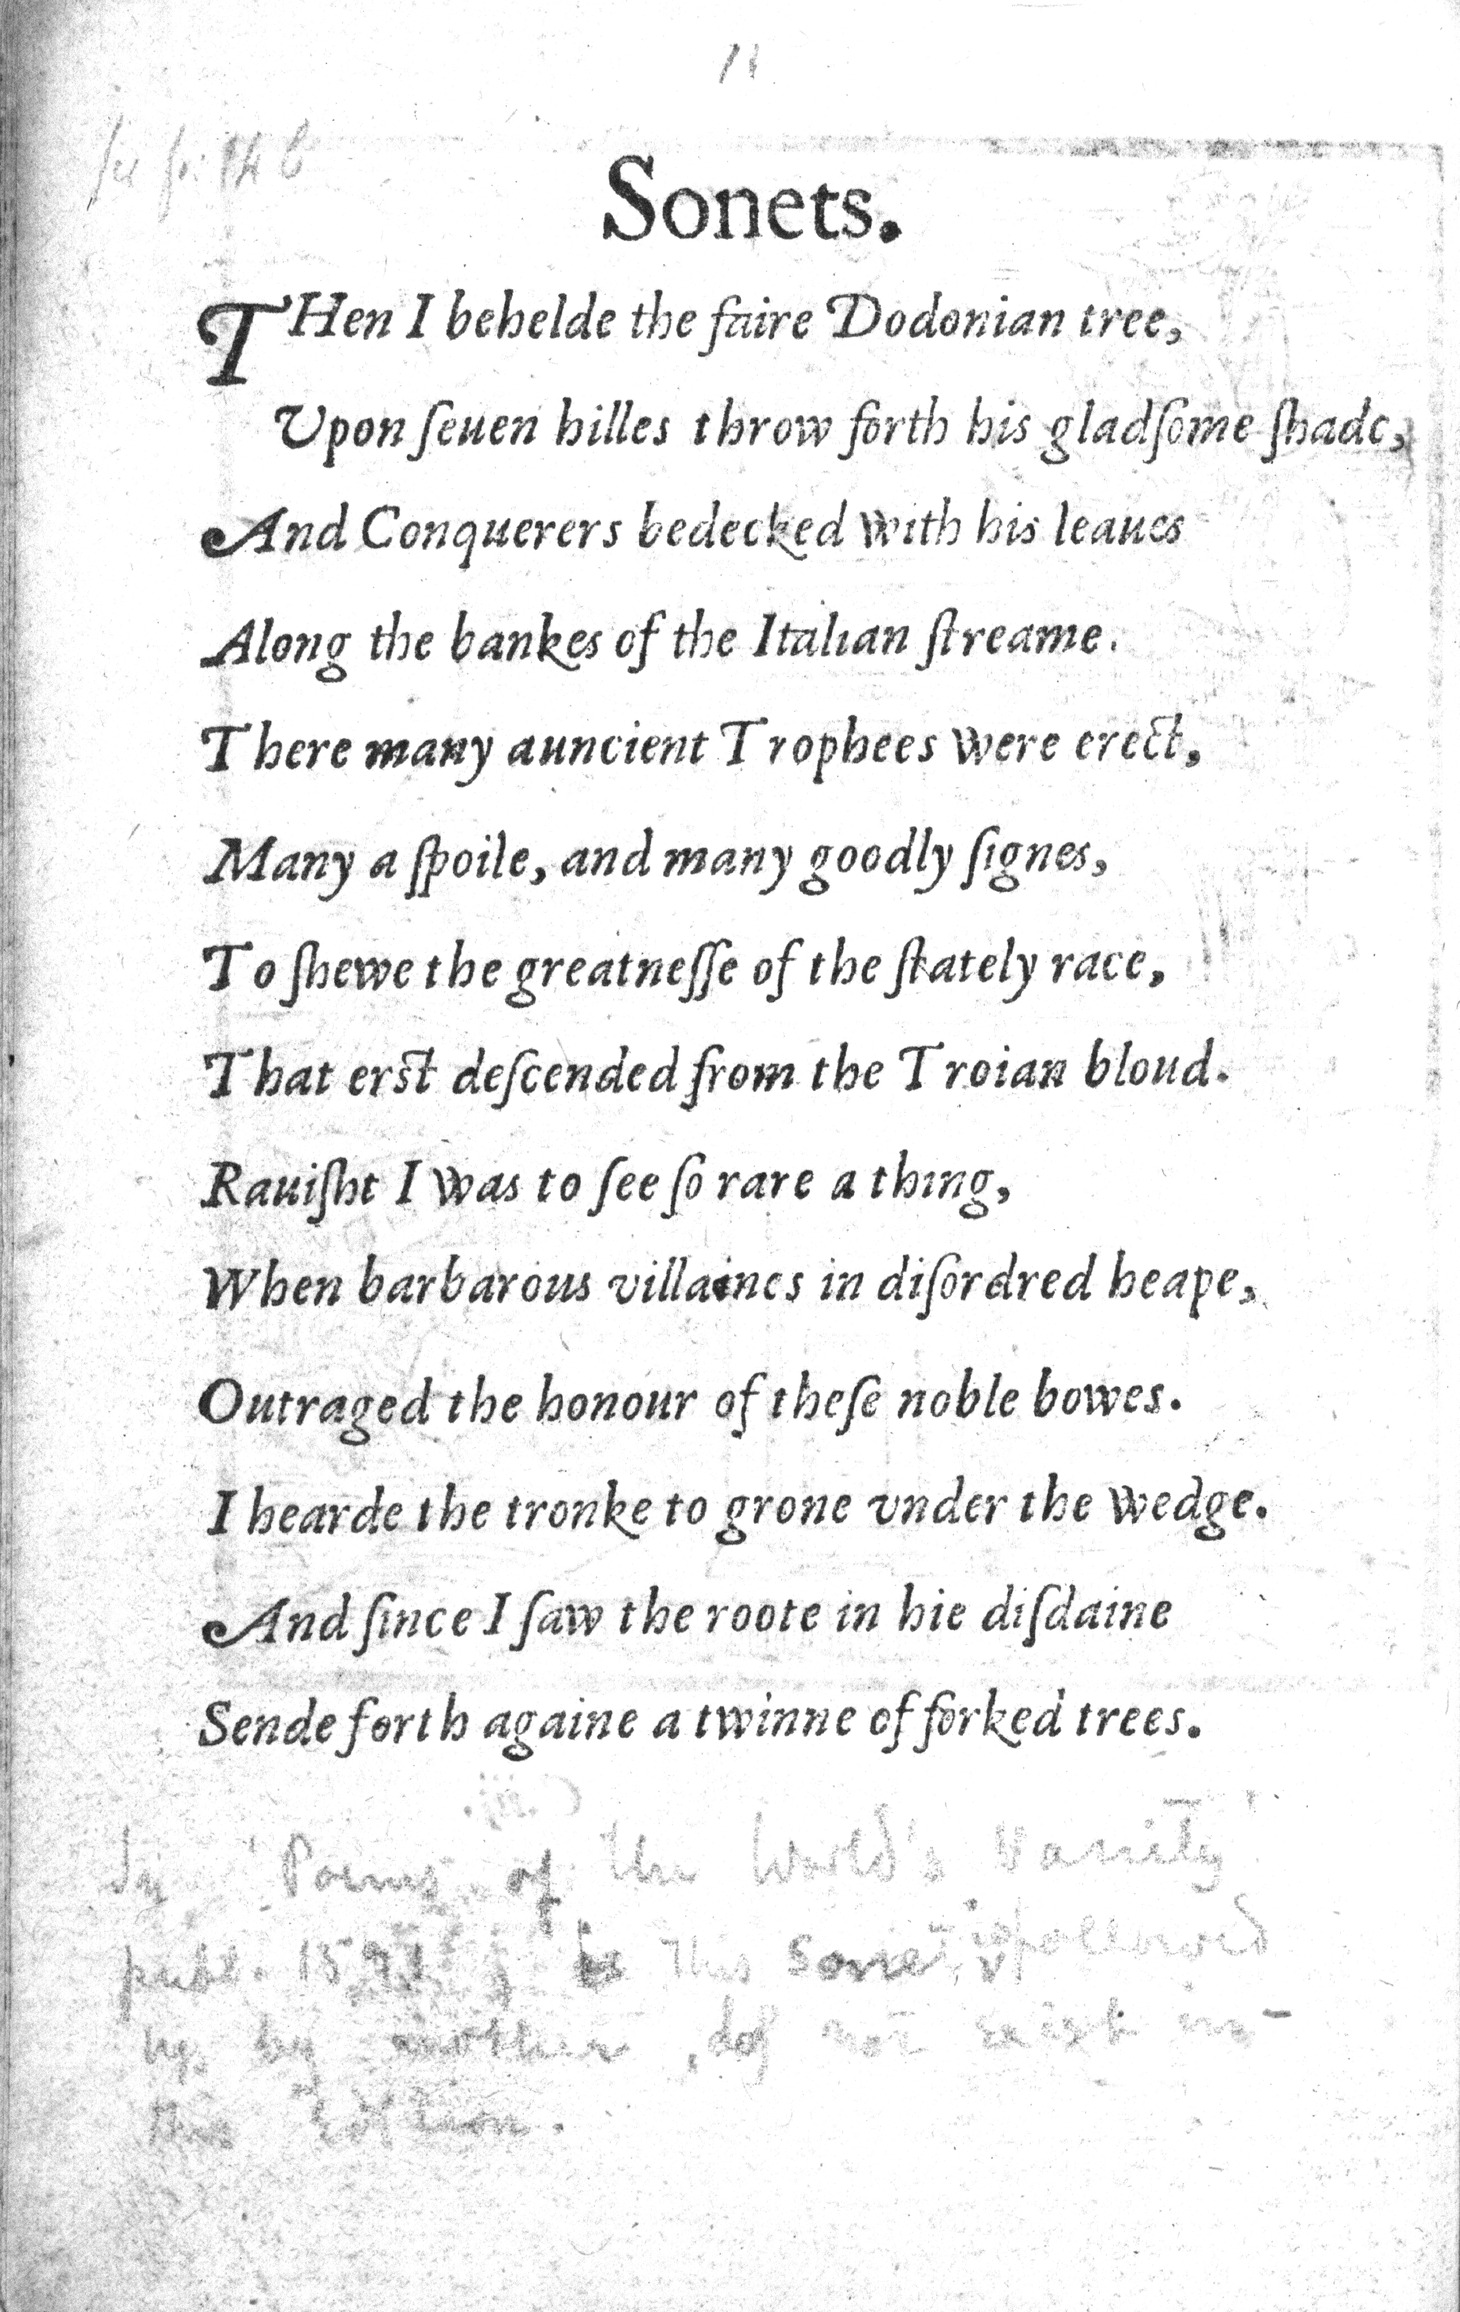 11
Sonets.
THen I behelde the faire Dodonian tree,
Upon ſeuen hilles throw forth his gladſome ſhade,
And Conquerers bedecked with his leaues
Along the bankes of the Italian ſtreame.
There many auncient Trophees were erect,
Many a ſpoile, and many goodly ſignes,
To ſhewe the greatneſſe of the ſtately race,
That erst deſcended from the Troian bloud.
Rauiſht I was to ſee ſo rare a thing,
When barbarous villaines in diſordred heape,
Outraged the honour of theſe noble bowes.
I hearde the tronke to grone vnder the wedge.
And ſince I ſaw the roote in hie diſdaine
Sende forth againe a twinne of forked trees.
In 'Poems of the World's Vanity'
publ. 1591 this Sonet, is followed
up by another, does not exist in
this Edition.